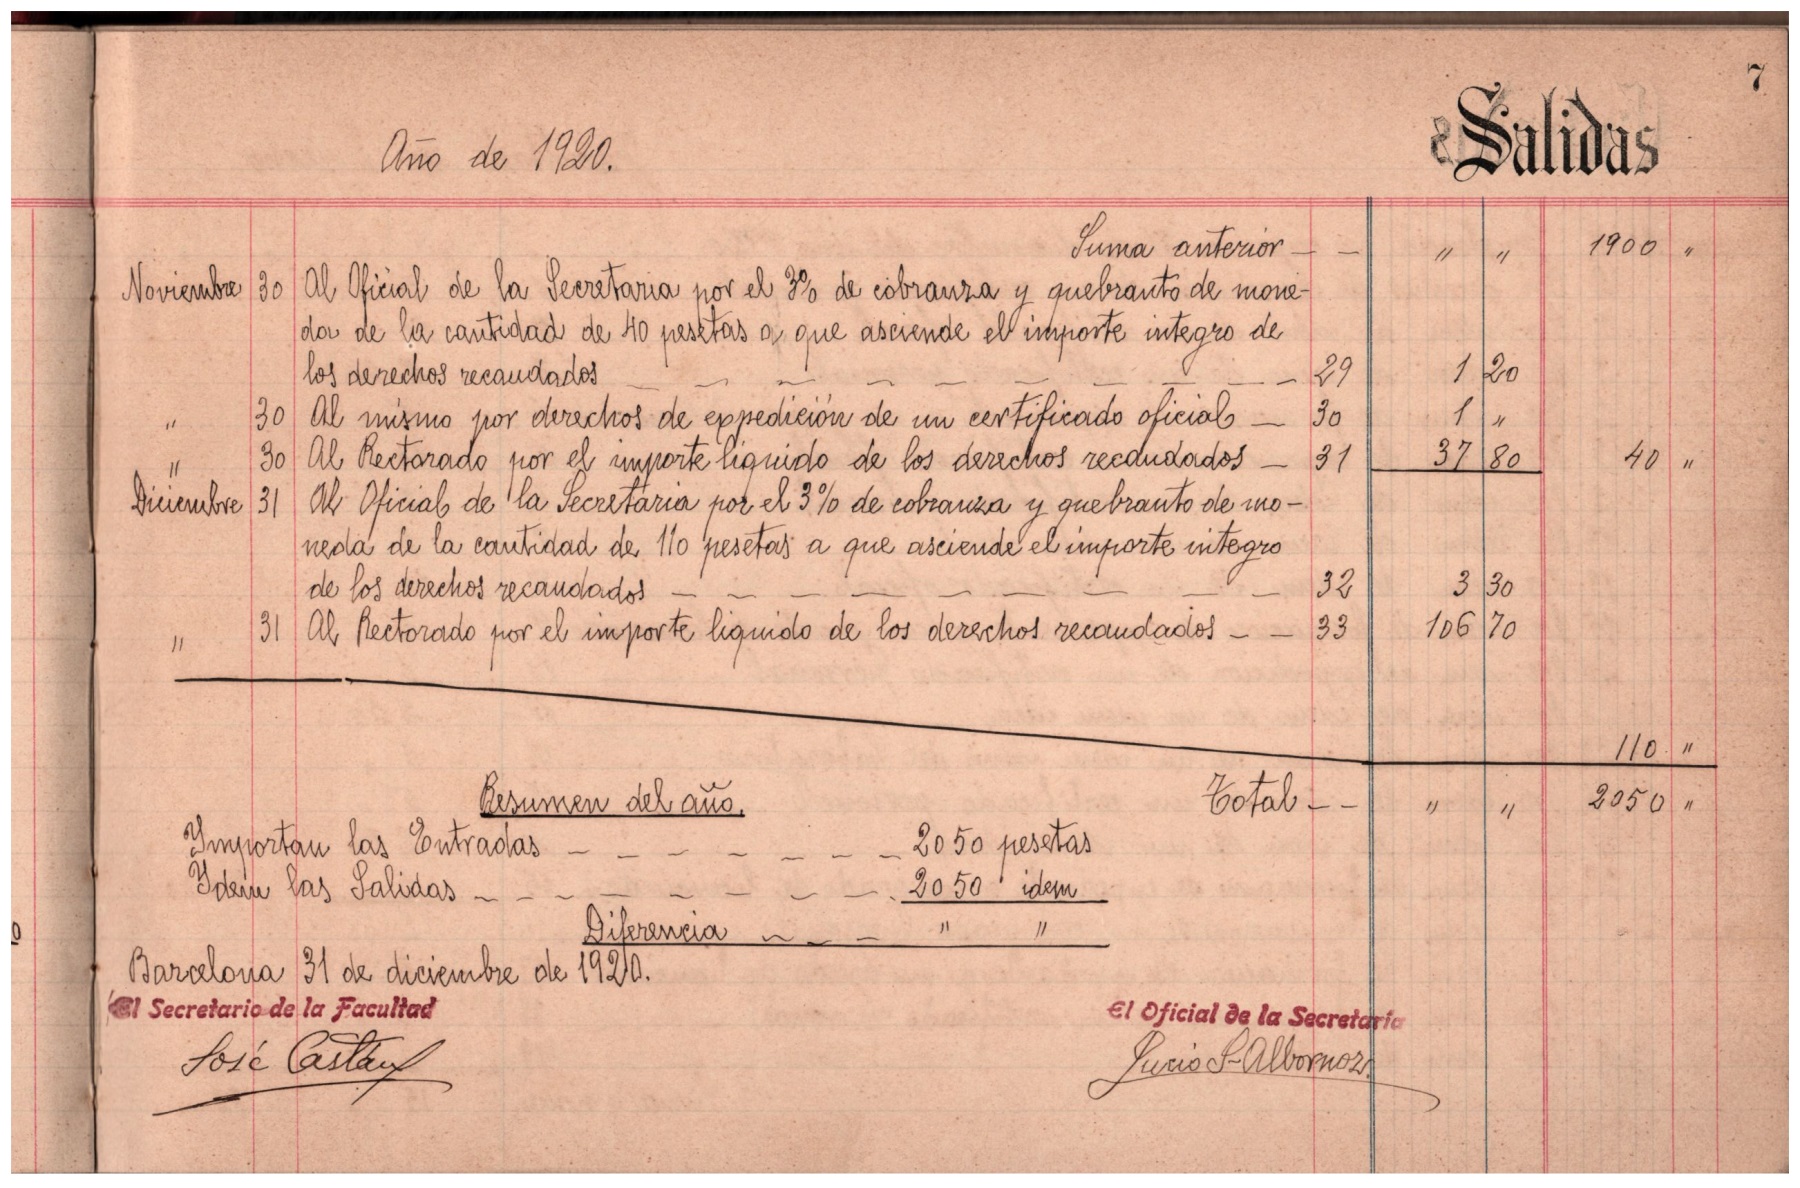 7
Salidas
Año de 1920.
Suma anterior — — " " 1900 "
Noviembre 30 Al Oficial de la Secretaria por el 3% de cobranza y quebranto de mone-
da de la cantidad de 40 pesetas a que asciende el importe integro de
los derechos recaudados — — — — — — — — — 29 1 20
" 30 Al mismo por derechos de expedición de un certificado oficial — 30 1 "
" 30 Al Rectorado por el importe liquido de los derechos recaudados — 31 37 80 40 "
Diciembre 31 Al Oficial de la Secretaria por el 3% de cobranza y quebranto de mo-
neda de la cantidad de 110 pesetas a que asciende el importe integro
de los derechos recaudados — — — — — — — — — 32 3 30
" 31 Al Rectorado por el importe liquido de los derechos recaudados — — 33 106 70
110 "
Total — — " " 2050 "
Resumen del año.
Importan las Entradas — — — — — — — — 2050 pesetas
Idem las Salidas — — — — — — — — 2050 idem
Diferencia — — — " "
Barcelona 31 de diciembre de 1920.
El Secretario de la Facultad El Oficial de la Secretaria
José Lucio S-Albornoz